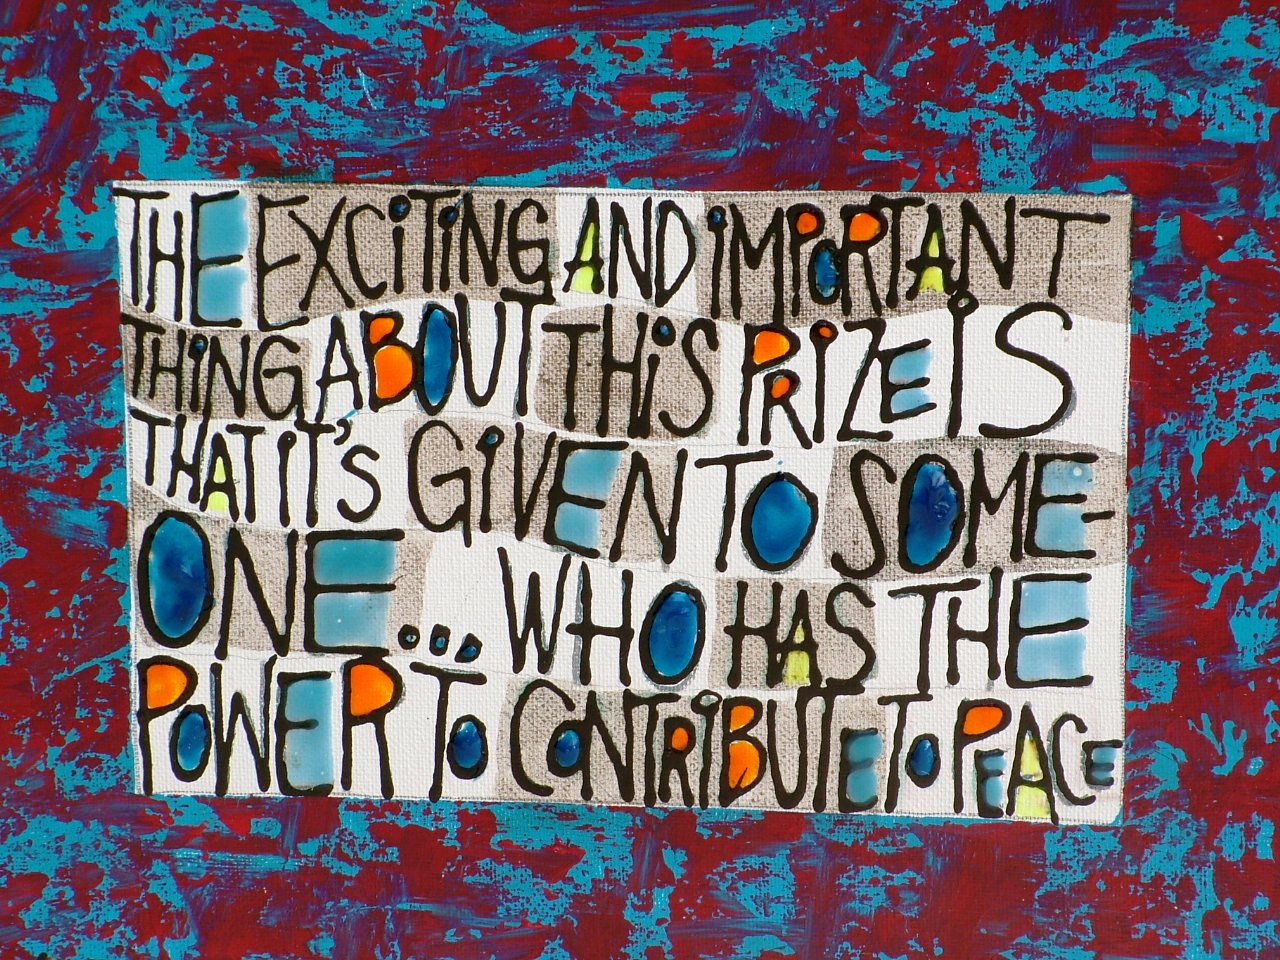 THE EXCiTiNG AND iMPORTANT
THiNG ABOUT THiS PRiZE iS
THAT iT'S GiVEN TO SOME-
ONE... WHO HAS THE
POWER TO CONTRiBUTE TO PEACE